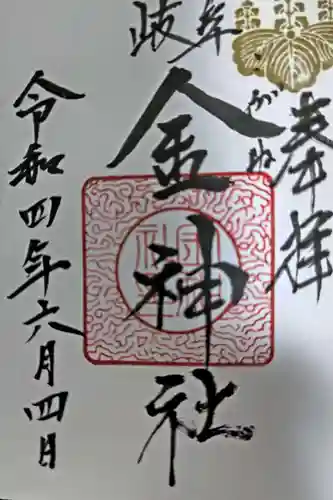 奉拝
岐阜
こがね
金神社
令和四年六月四日